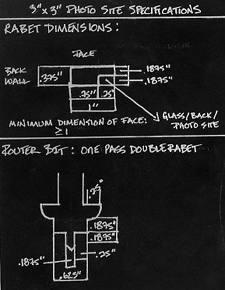 3"x3" PHOTO SITE SPECIFICATIONS
RABET DIMENSIONS:
FACE
BACK
WALL
.375"
.1875"
.1875"
.75"
.25"
1"
GLASS/BACK/
PHOTO SITE
MINIMUM DIMENSION OF FACE:
≥1
ROUTER BIT: ONE PASS DOUBLE RABET
.1875"
.1875"
.1875"
.25"
.625"